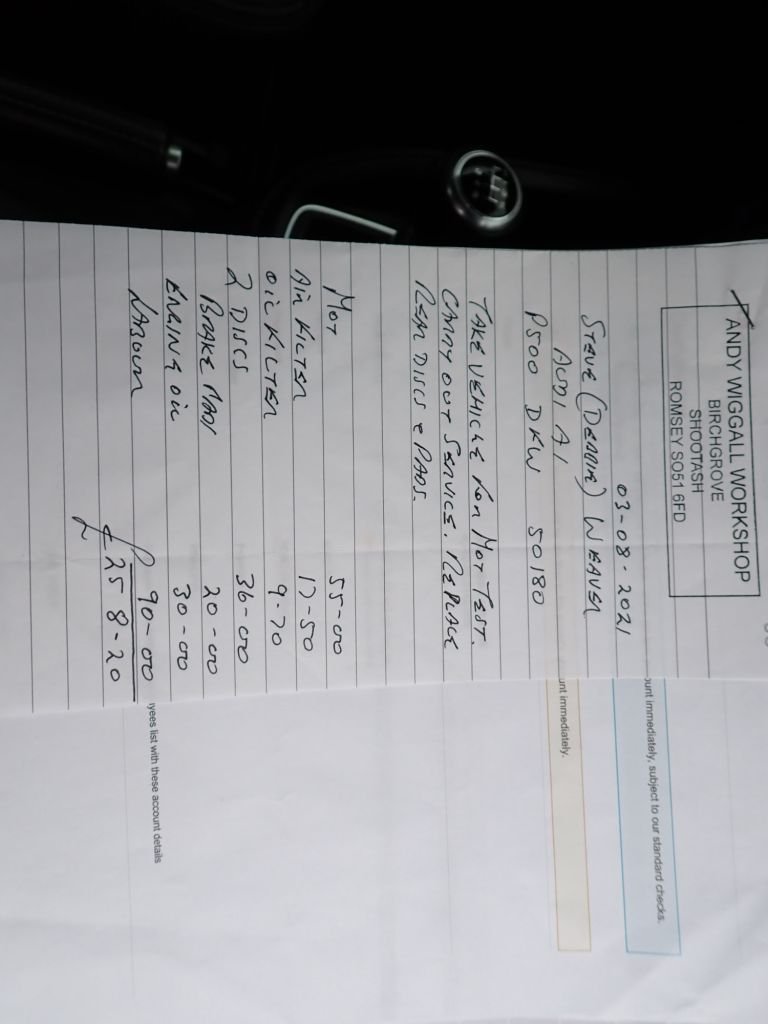 ANDY WIGGALL WORKSHOP
BIRCHGROVE
SHOOTASH
ROMSEY SO51 6FD
03-08-2021
STEVE WEAVER
AUDI A1
P500 DKW 50180
TAKE VEHICLE FOR MOT TEST.
CARRY OUT SERVICE. REPLACE
REAR DISCS & PADS.
MOT 55-00
AIR FILTER 17-50
OIL FILTER 9-70
2 DISCS 36-00
BRAKE PADS 20-00
ENGINE OIL 30-00
LABOUR 90-00
£258-20
ount immediately, subject to our standard checks.
unt immediately.
yees list with these account details